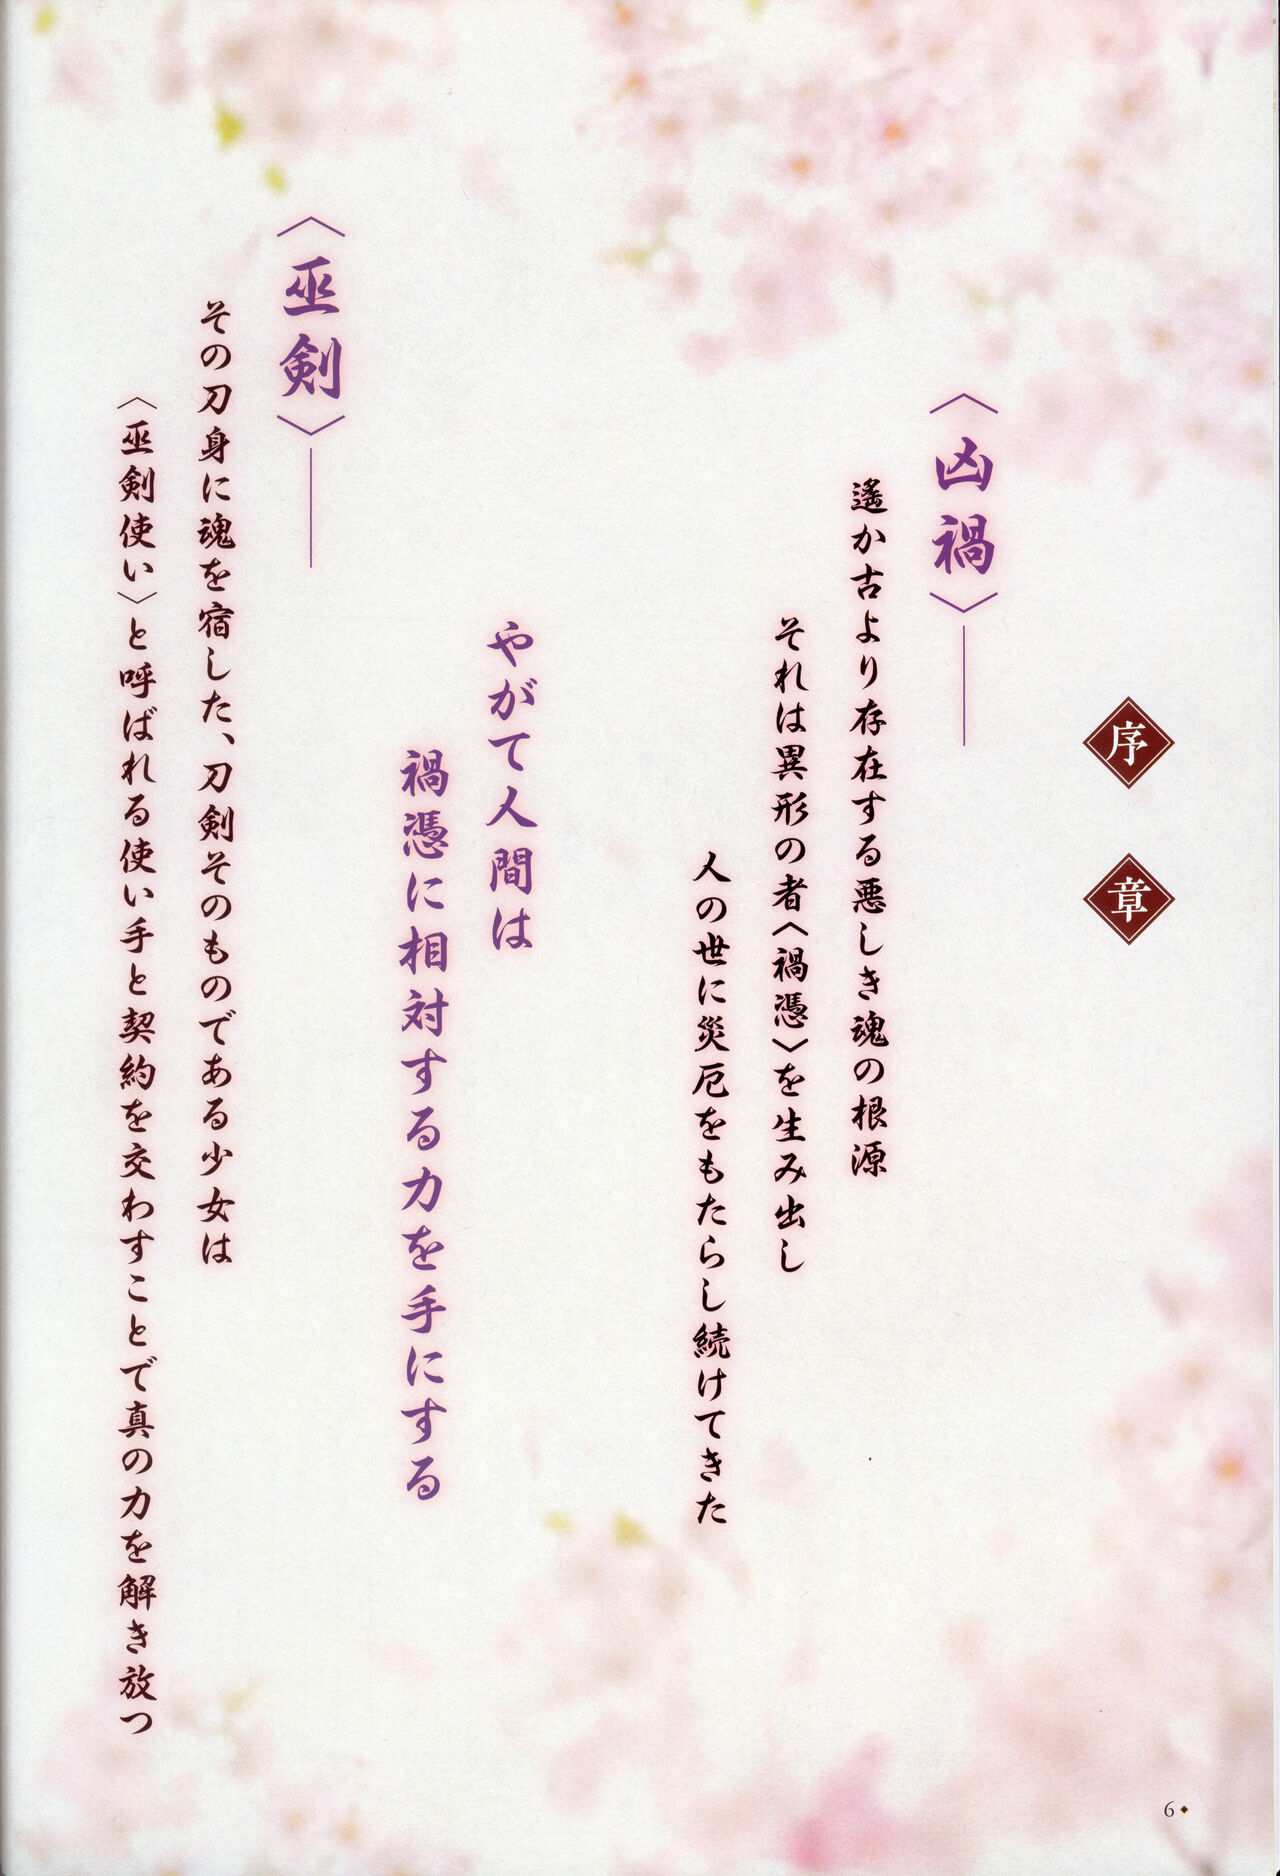 序章
〈凶禍〉――
遙か古より存在する悪しき魂の根源
それは異形の者〈禍憑〉を生み出し
人の世に災厄をもたらし続けてきた
やがて人間は
禍憑に相対する力を手にする
〈巫剣〉――
その刀身に魂を宿した、刀剣そのものである少女は
〈巫剣使い〉と呼ばれる使い手と契約を交わすことで真の力を解き放つ
6